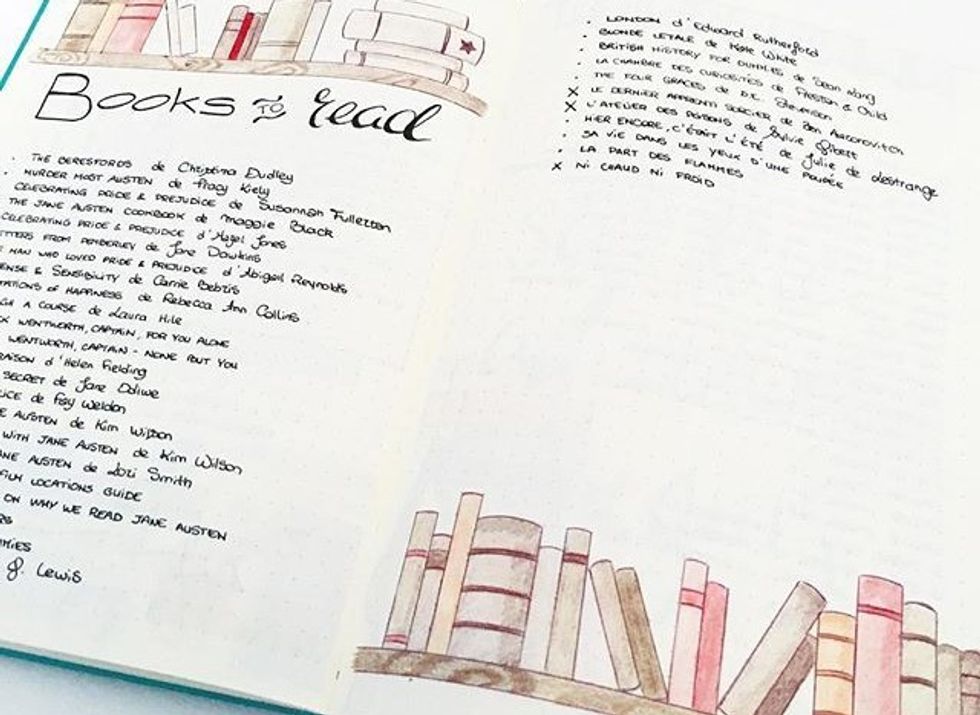 BOOKS TO read
. THE BERESFORDS de Christina Dudley
. MURDER MOST AUSTEN de Tracy Kiely
CELEBRATING PRIDE & PREJUDICE de Susannah Fullerton
THE JANE AUSTEN COOKBOOK de Maggie Black
CELEBRATING PRIDE & PREJUDICE d'Hazel Jones
FROM PEMBERLEY de Jane Dawkins
MAN WHO LOVED PRIDE & PREJUDICE d'Abigail Reynolds
& SENSIBILITY de Carrie Bebris
OF HAPPINESS de Rebecca Ann Collins
A COURSE de Laura Hile
WENTWORTH, CAPTAIN, FOR YOU ALONE
WENTWORTH, CAPTAIN - NONE BUT YOU
d'Helen Fielding
SECRET de Jane Odiwe
de Fay Weldon
AUSTEN de Kim Wilson
WITH JANE AUSTEN de Kim Wilson
AUSTEN de Lori Smith
FILM LOCATIONS GUIDE
ON WHY WE READ JANE AUSTEN
Lewis
. LONDON d'Edward Rutherford
. BLONDE LETALE de Kate White
. BRITISH HISTORY FOR DUMMIES de Sean Lang
. LA CHAMBRE DES CURIOSITÉS de Preston & Child
. THE FOUR GRACES de D.E. Stevenson
X LE DERNIER APPRENTI SORCIER de Ben Aaronovitch
X L'ATELIER DES POISONS de Sylvie Gibert
. HIER ENCORE, C'ÉTAIT L'ÉTÉ de Julie de Lestrange
. SA VIE DANS LES YEUX D'UNE POUPÉE
. LA PART DES FLAMMES
X NI CHAUD NI FROID